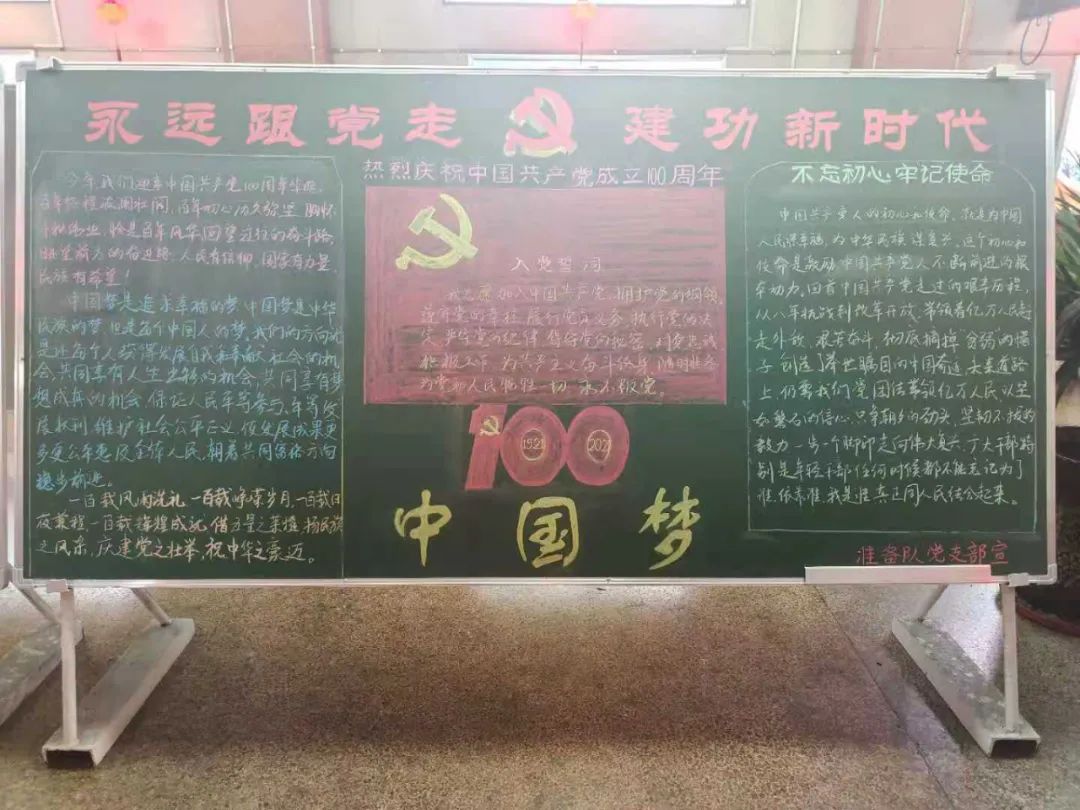 永远跟党走 建功新时代
热烈庆祝中国共产党成立100周年
今年我们迎来中国共产党100周年华诞。
百年征程波澜壮阔,百年初心历久弥坚。
恰是百年风华。回望过往的奋斗路,
眺望前方的奋进路,人民有信仰,国家有力量,
民族有希望!
中国梦是追求幸福的梦。中国梦是中华
民族的梦,也是每个中国人的梦。我们的方向就
是让每个人获得发展自我和奉献社会的机
会,共同享有人生出彩的机会,共同享有梦
想成真的机会,保证人民平等参与、平等发
展权利,维护社会公平正义,使发展成果更
多更公平惠及全体人民,朝着共同富裕方向
稳步前进。
一百载风雨洗礼,一百载峥嵘岁月,一百载日
夜兼程,一百载辉煌成就。借五星之荣耀,扬民族
之风东,庆建党之壮举,祝中华之豪迈。
入党誓词
我志愿加入中国共产党,拥护党的纲领,
遵守党的章程,履行党员义务,执行党的决
定,严守党的纪律,保守党的秘密,对党忠诚,
积极工作,为共产主义奋斗终身,随时准备
为党和人民牺牲一切,永不叛党。
100
1921
2021
中国梦
不忘初心 牢记使命
中国共产党人的初心和使命,就是为中国
人民谋幸福,为中华民族谋复兴。这个初心和
使命是激励中国共产党人不断前进的根
本动力。回首中国共产党走过的艰辛历程,
从八年抗战到改革开放,带领着亿万人民
走外放,艰苦奋斗,彻底摘掉贫弱的帽
子,创造了举世瞩目的中国奇迹。未来道路
上,仍需我们党团结带领亿万人民以坚
如磐石的信心、只争朝夕的劲头、坚韧不拔的
毅力,一步一个脚印走向伟大复兴。广大干部特
别是年轻干部任何时候都不能忘记为了
谁、依靠谁、我是谁,真正同人民结合起来。
准备队党支部宣